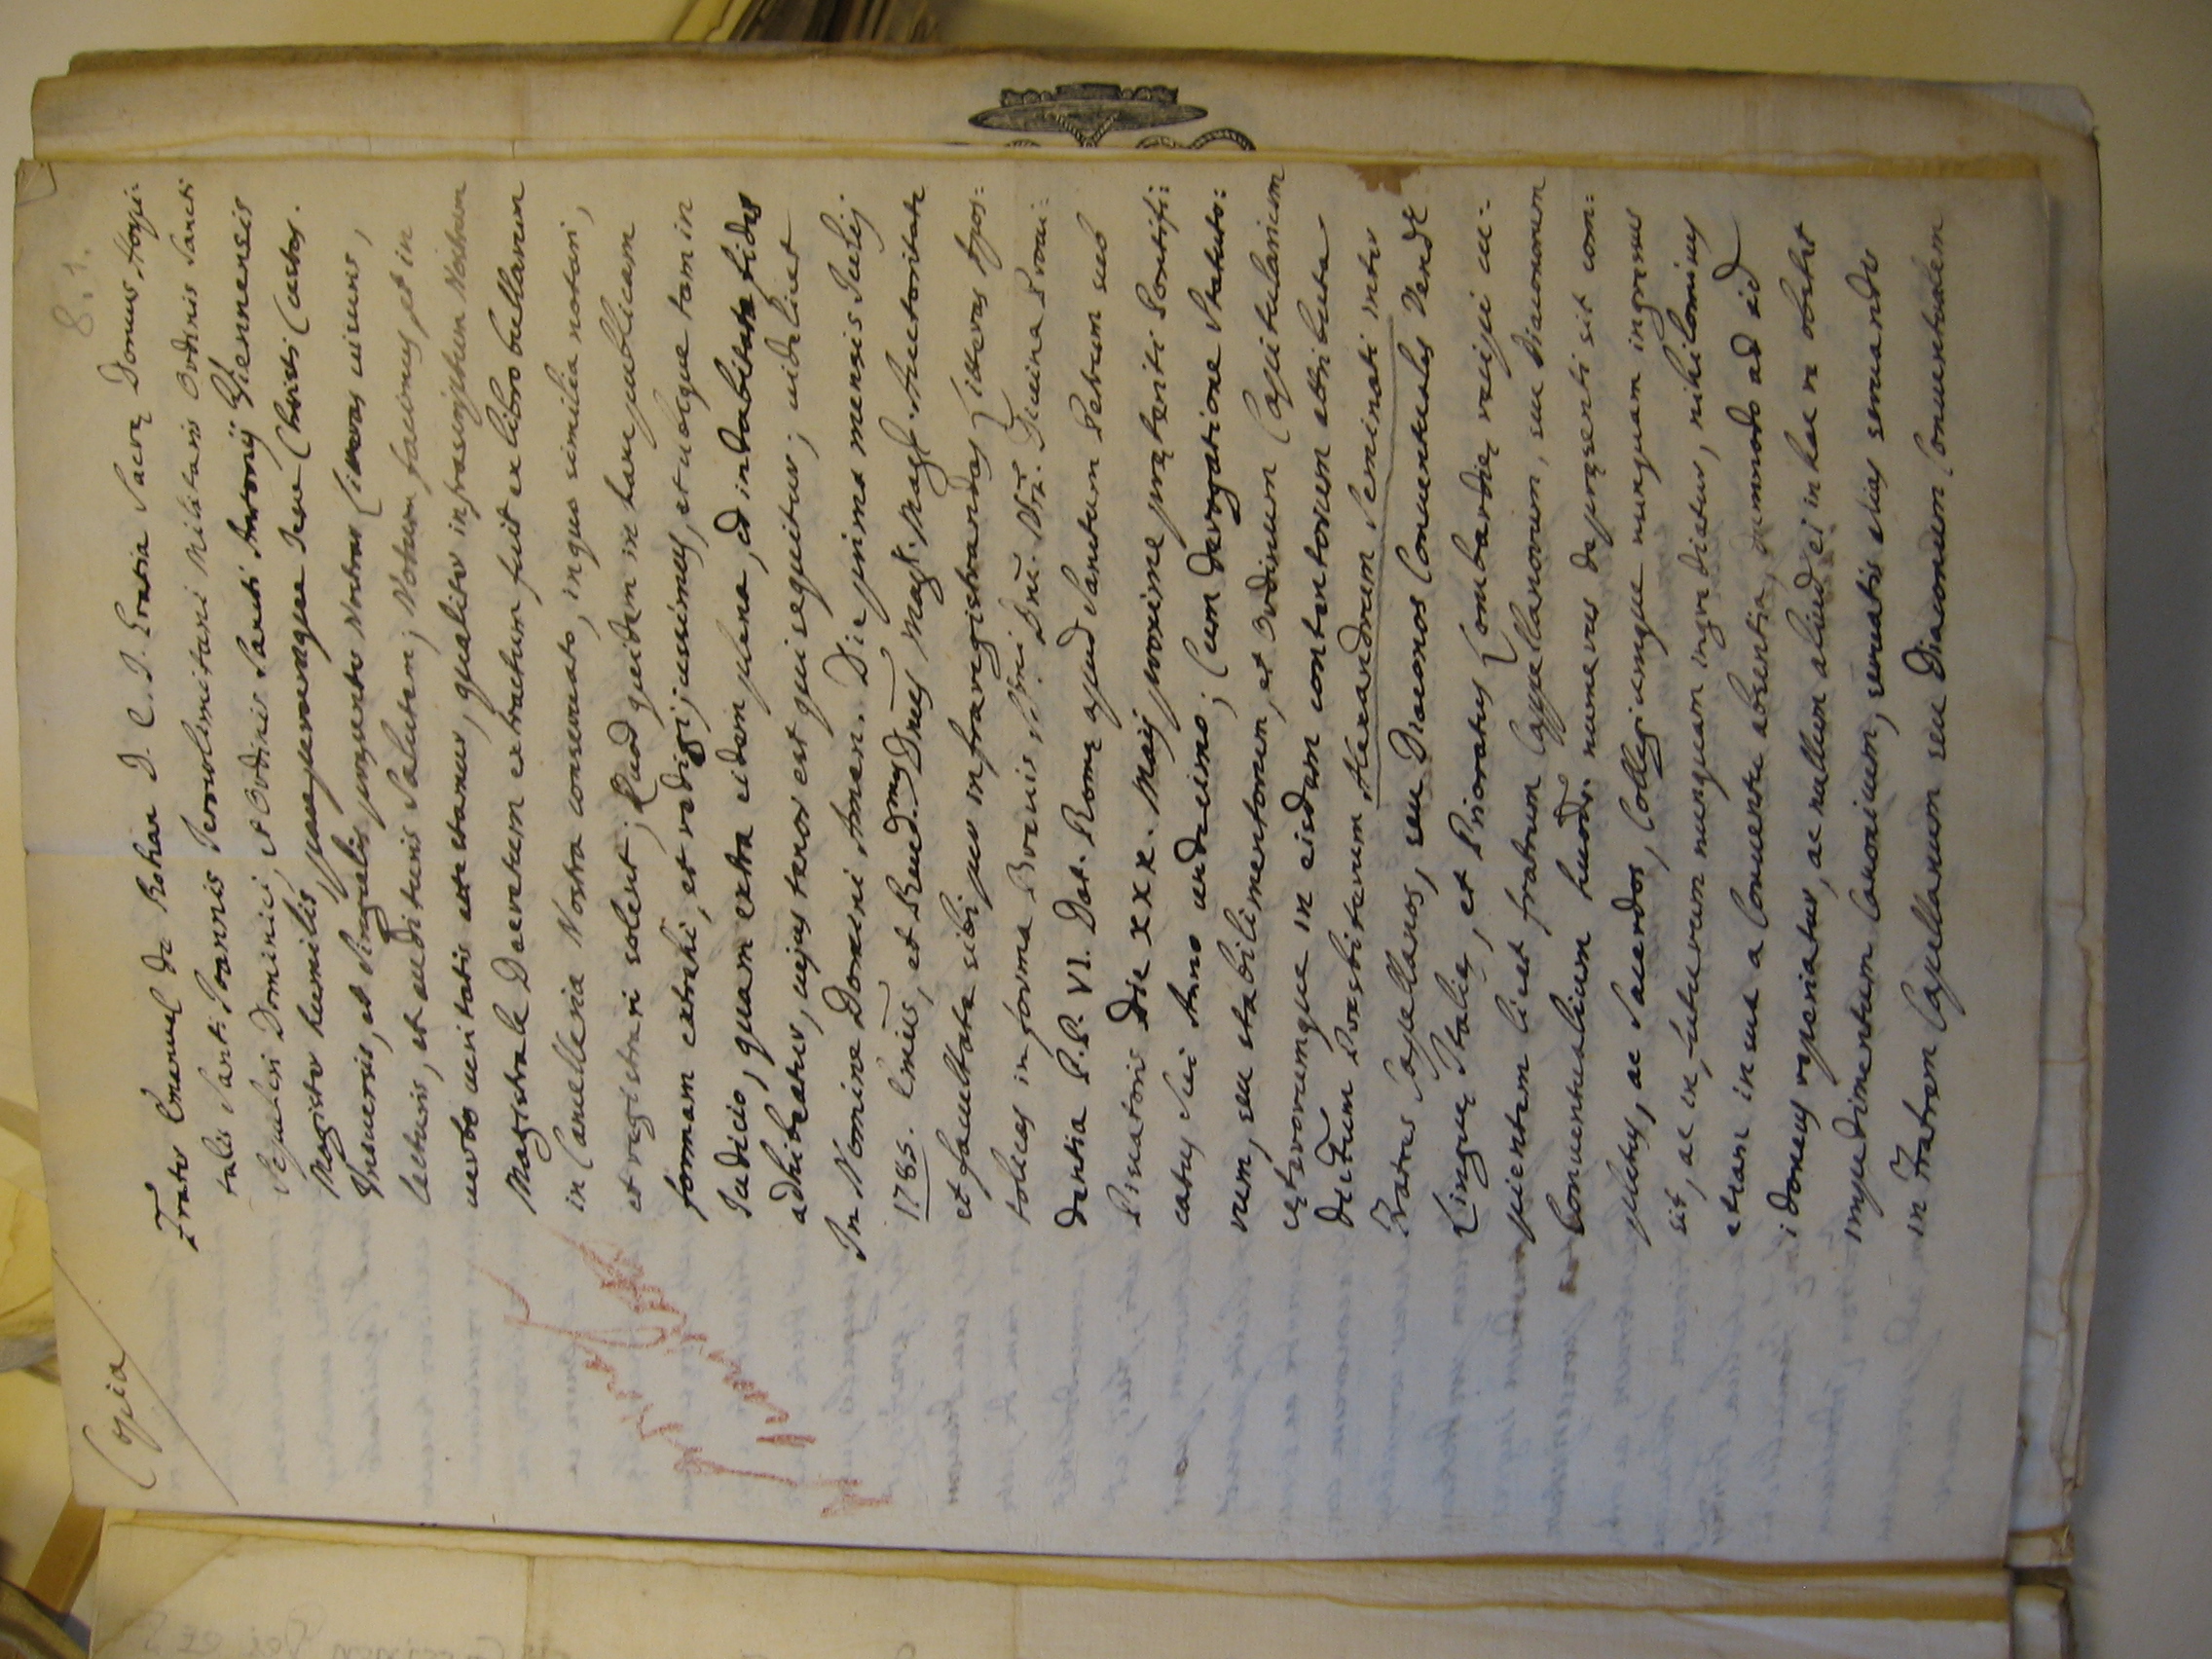 8. 1.
Copia
Frater Emanuel de Rohan D. C. D. Gratia Sacrę Domus Hospi:
talis Santi Joannis Jerosolimitani Militaris Ordinis Sancti
Sepulcri Dominici, et Ordinis Santi Antonij Viennensis
Magister humilis, pauperumque Jesu Christi Custos.
Universis, et Singulis presentes Nostras Literas visuris,
lecturis, et audituris Salutem; Notum facimus, et in
verbo veritatis attestamur, qualiter infrascriptum Nostrum
Magistrale Decretum extractum fuit ex libro bullarum
in Cancelleria Nostra conservato, in quo similia notari,
et registrari solent; Quod quidem in hanc publicam
formam extrahi, et redigi jussimus, et ubique tam in
Judicio, quam extra eidem plena, ed indubitata fides
adhibeatur, cujus tenor est qui sequitur, videlicet
In Nomine Domini Amen. Die prima mensis Julij
1785. Emūs, et Reudmūs Dnūs Magr. Magl. Auctoritate
et facultate sibi per infraregistrandas Litteras Apos:
tolicas in forma Brevis Smi. Dni. Nri. Divina Provi:
dentia P.P. VI. Dat. Romę apud Santum Petrum sub
Piscatoris Die XXX. Maij proxime pręteriti Pontifi:
catus sui Anno undecimo; Cum derogatione Statuto:
rum, seu stabilimentorum, et Ordinum Capitularium
cęterorumque in eisdem contentorum attributa
dictum Presbiterum Alexandrum Seminati inter
Fratres Capellanos, seu Diaconos Conventuales Vendę
Linguę Italię, et Prioratus Lombardię recipi cu:
pientem licet fratrum Cappellanorum, seu Diaconorum
Conventualium huiodi. numerus de pręsenti sit com:
pletus, ac Sacerdos, Collegiumque nunquam ingressus
sit, ac in futurum nunquam ingrediatur, nihilominus
etiam in sua a Conventu absentia, dummodo ad id
idoneus reperiatur, ac nullum aliud ei in hac re obstet
impedimentum Canonicum, servatis alias servandis
in Fratrem Capellanum seu Diaconum Conventualem